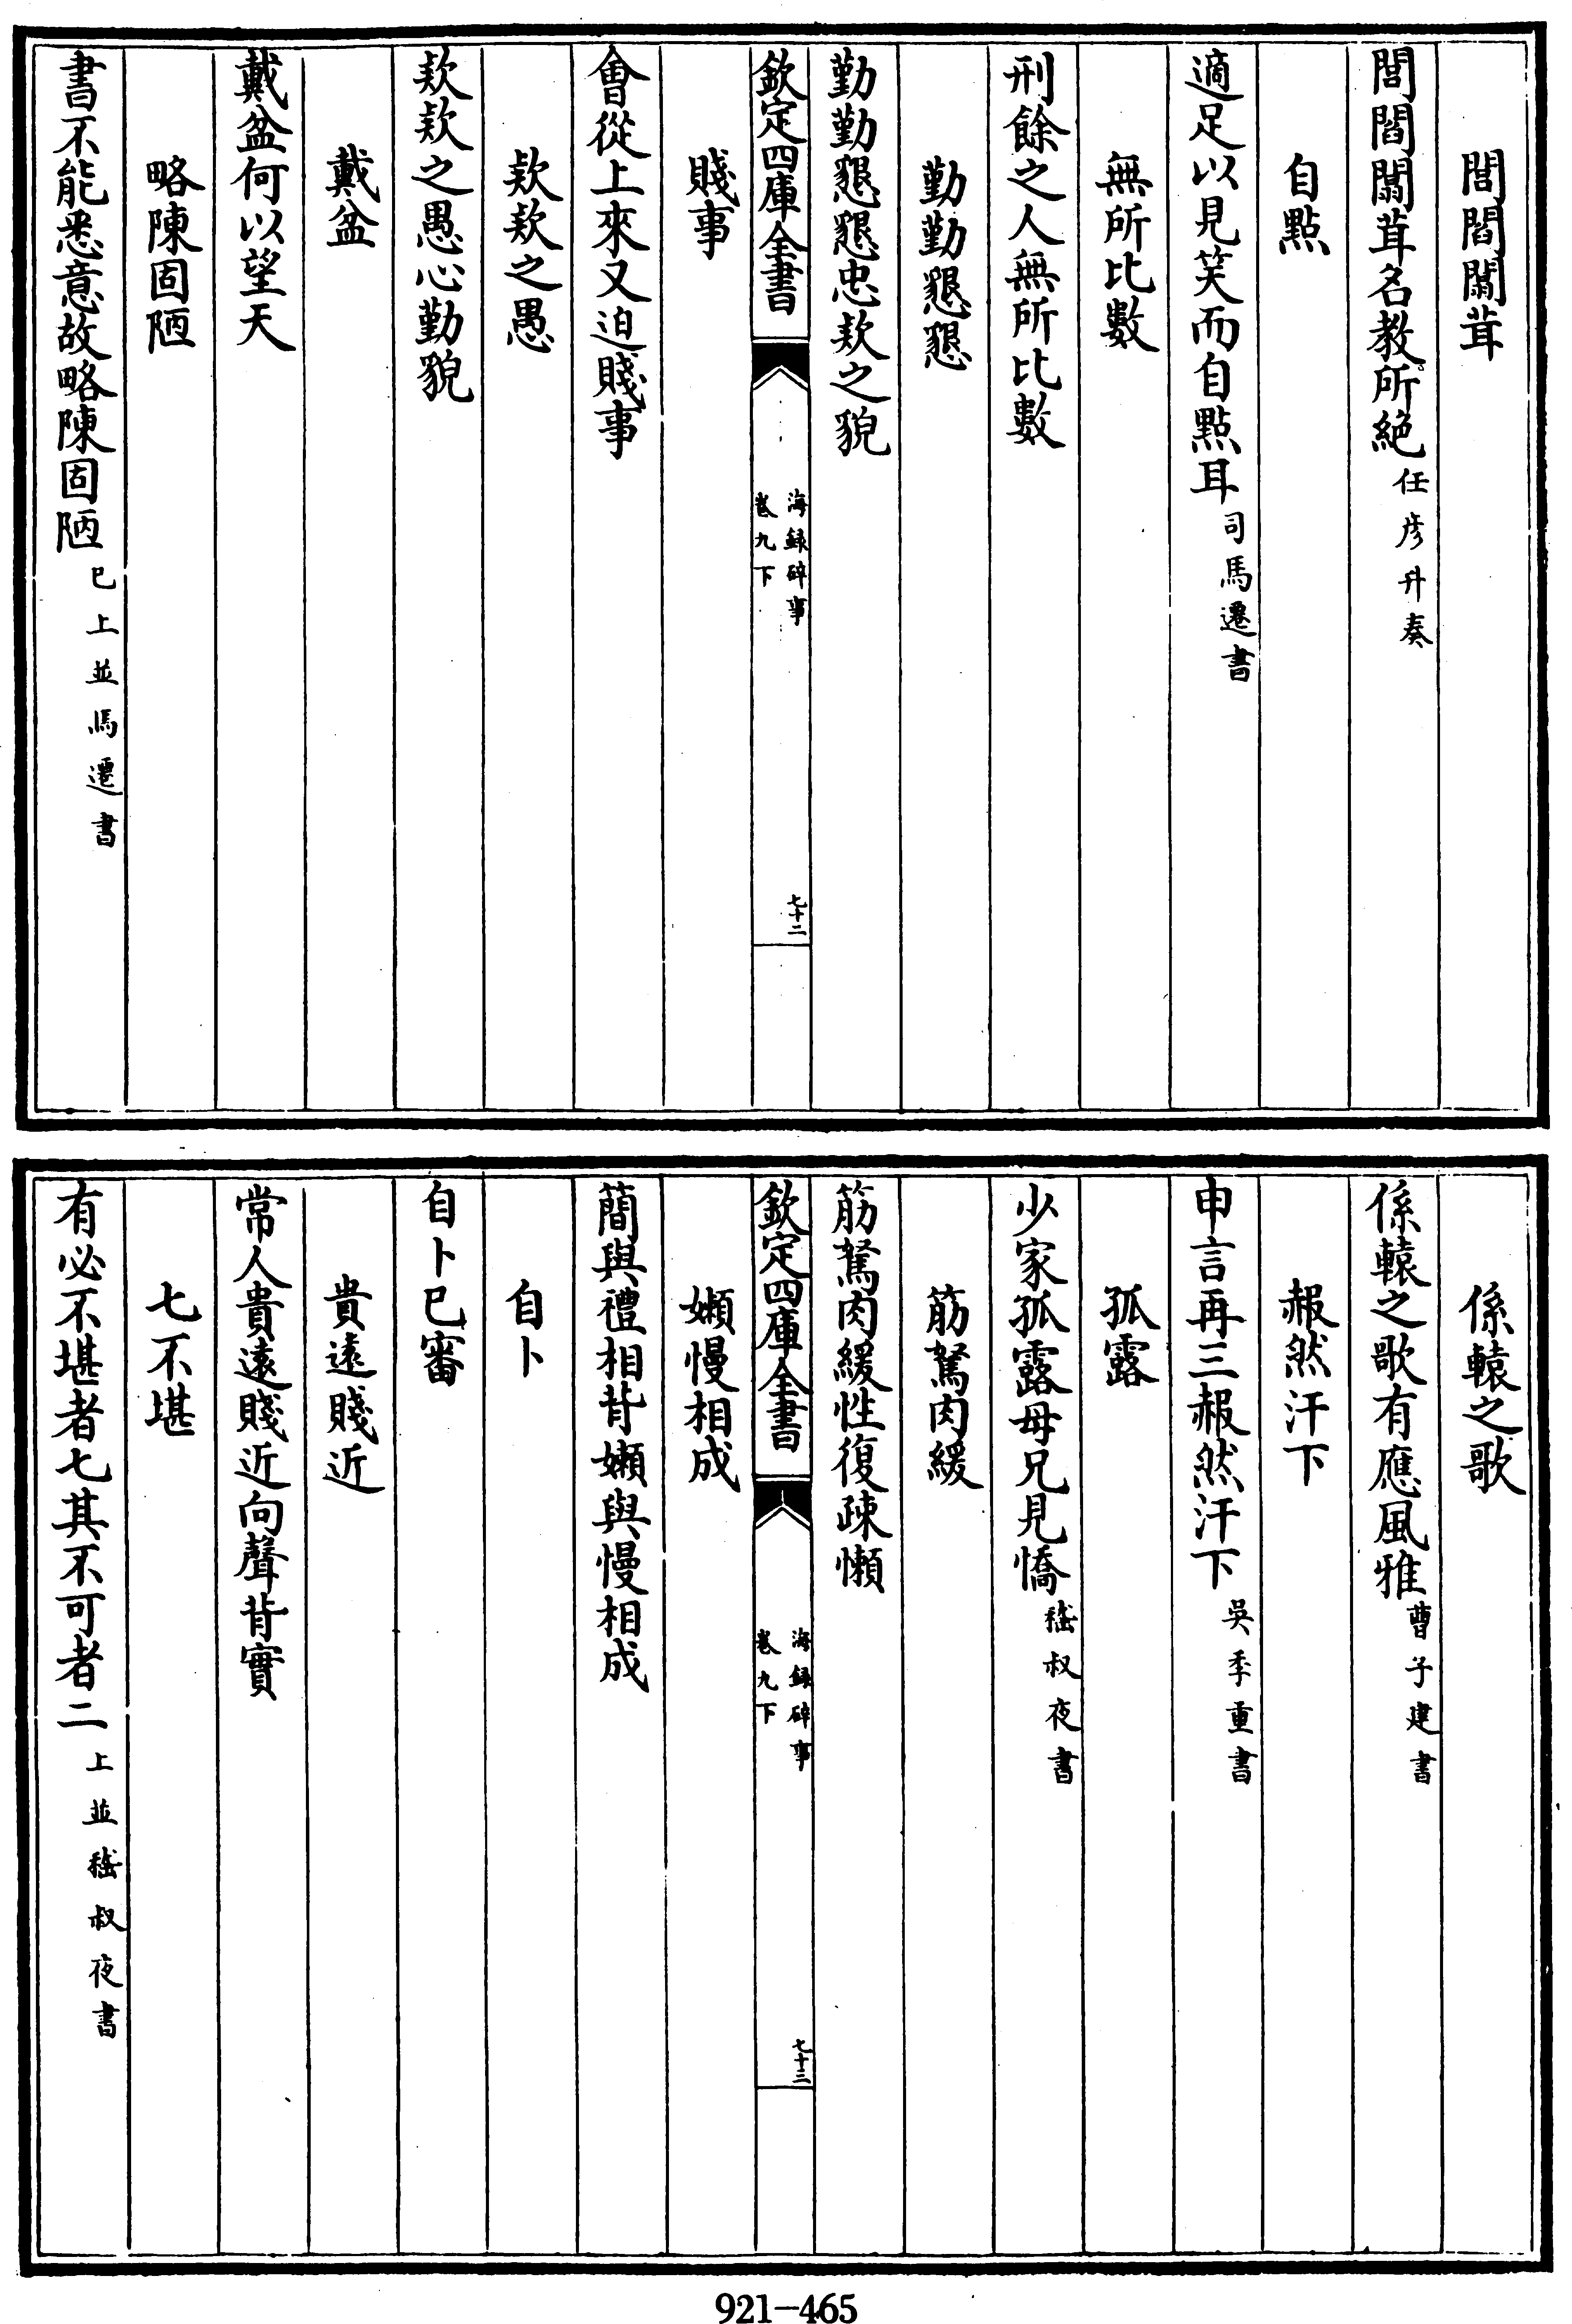 閭閻闒茸
閭閻闒茸名教所絶任彦升奏
自點
適足以見笑而自點耳司馬遷書
無所比數
刑餘之人無所比數
勤勤懇懇
勤勤懇懇忠欵之貌
欽定四庫全書
海録碎事
卷九下
七十二
賤事
會從上來又迫賤事
欵欵之愚
欵欵之愚心勤貌
戴盆
戴盆何以望天
略陳固陋
書不能悉意故略陳固陋已上並馬遷書
係轅之歌
係轅之歌有應風雅曹子建書
赧然汗下
申言再三赧然汗下吳季重書
孤露
少家孤露母兄見憍嵇叔夜書
筋駑肉緩
筋駑肉緩性復疎懶
欽定四庫全書
海録碎事
卷九下
七十三
嬾慢相成
簡與禮相背嬾與慢相成
自卜
自卜已審
貴遠賤近
常人貴遠賤近向聲背實
七不堪
有必不堪者七其不可者二上並嵇叔夜書
921-465